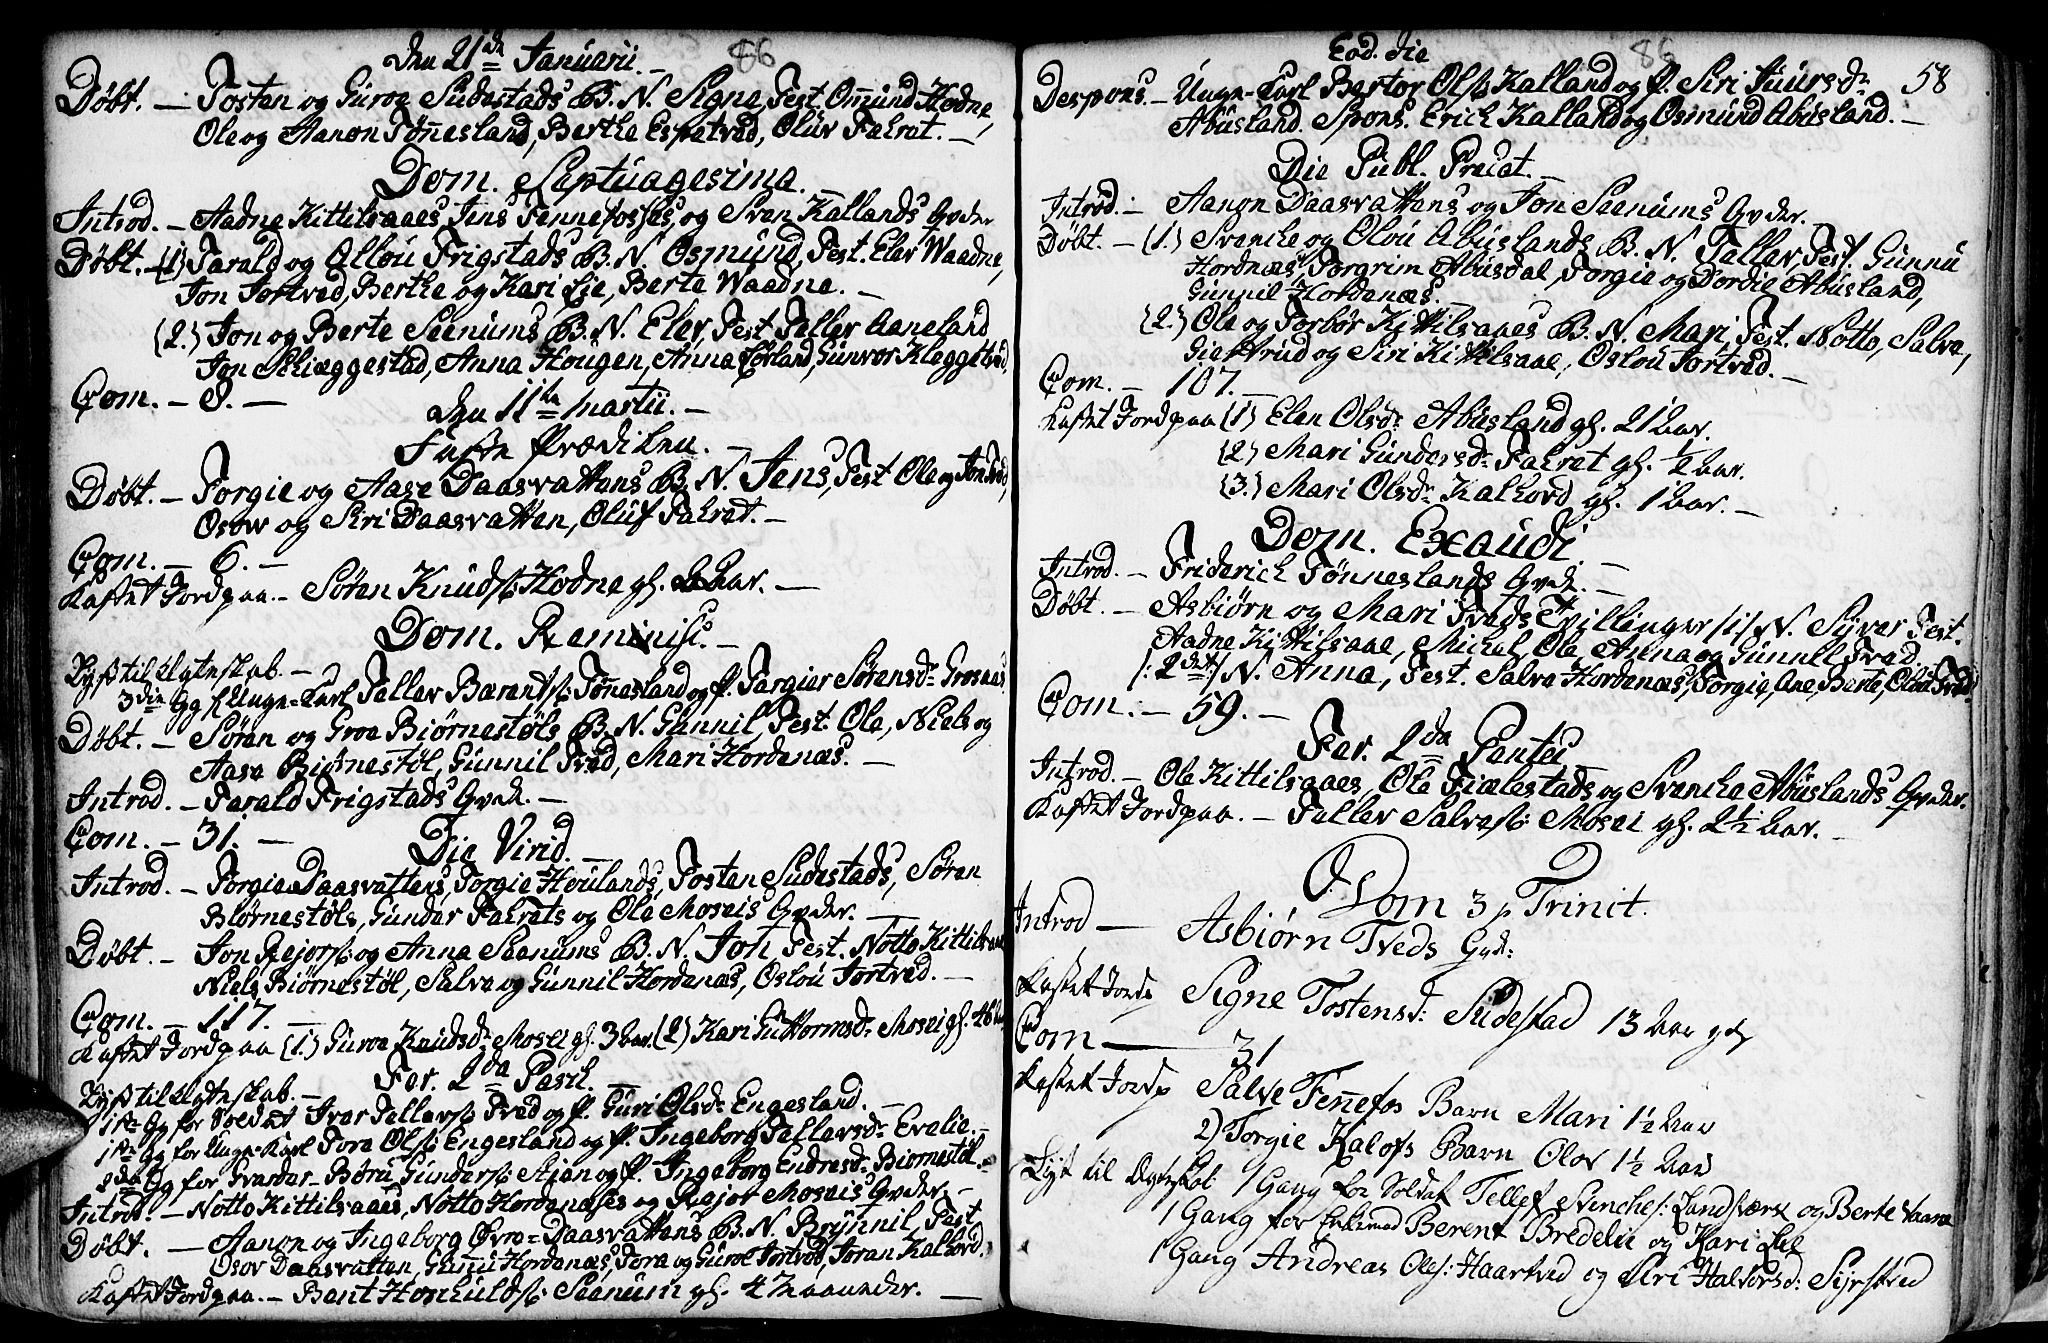 den 21de Januarii.
86
Døbt. – Tosten og Guroe Sudestads B. N. Signe, Test. Omund Hodne,
Ole og Aanon Tønnesland, Berthe Espetved, Oluv Fakret. –
Dom. Septuagesima.
Introd. – Aadne Kittilsaaes, Jens Fennefosses, og Sven Kallands Qvder.
Døbt. – (1) Tarald og Allou Frigstads B. N. Osmund, Test. Elev Waadne,
Jon Tortved, Berthe og Kari Lie, Berte Waadne. –
(2.) Jon og Berte Senums B. N. Elev, Test. Tellev Aaneland,
Jon Skieggestad, Anna Hougen, Anna Førland, Gunvor Kleggetved,
Com. – 8. –
den 11te Martii. –
Faste Prædiken. –
Døbt. – Torgie og Aase Daasvattens B. N. Jens, Test Ole og Jon
Osow og Siri Daasvatten, Oluf Fakret. –
Com. – 6. –
Kastet Jord paa. – Søren Knuds: Hodne gl. Aar. –
Dom. Reminisc. –
Lyst til Ægteskab. –
3die Gg f. Unge-Karl Tellev Berents: Tønnesland og P. Torgier Sørensdr Grosaas
Døbt. – Søren og Groe Biørnestøls B. N. Gunnil, Test. Ole, Niels og
Aase Biørnestøl, Gunnil Tved, Mari Hordenæs. –
Introd. – Tarald Frigstads Qvde. –
Com. – 31. –
Die Virid. –
Introd. – Torgie Daasvattens, Torgie Houlands, Tosten Sudestads, Søren
Biørnestøls, Gunder Fakrets og Ole Moseis Qvder. –
Døbt. – Jon Rejors: og Anna Senums B. N. Jon Test. Notto Kittilsaae
Niels Biørnestøl, Salve og Gunnil Hordenæs, Oslou Tortved. –
Com. – 117. –
Kastet Jord paa (1.) Guroe Knudsdr Mosei gl. 3 Aar. (2) Kari Guttormsdr Mosei gl. 46 Aar
Fer. 2da Pasch. –
Lyst til Ægteskab. –
1ste Gg for Soldat Ivar Tellevs: Tved og P. Guri Olsdr Engesland. –
1ste Gg for Unge-Karl Tore Ols: Engesland og P. Ingeborg Tellevsdr Evelie. –
2den Gg for Børu Gunders: og P. Ingeborg Endresdr Biørnestøl. –
Introd. – Notto Kittilsaaes, Notto Hordenæses og Rejor Moseis Qvder. –
Døbt. – Aanon og Ingeborg Øvre-Daasvattens B. N. Brynnil, Test
Osov Daasvatten, Gunnu Hordenæs, Tore og Guroe Tortved, Joran Kalhovd.
Kastet Jord paa. – Bent Honhulds: Senum gl. 4 Maaneder. –
Eod. die
58
Despons. – Unge-Karl Bertor Ols: Kalland og P. Siri Juursdr
Abusland. Spons. Erich Kalland og Osmund Abusland. –
Die Publ. Precat. –
Introd. – Aanon Daasvattens og Jon Senums Qvder.
Døbt. – (1.) Svenche og Olou Abuslands B. N. Tellev, Test. Gunnu
Hordnæs, Torgrim Abusdal, Torgie og Dordie Abusland,
Gunnil Hordenæs.
(2.) Ole og Torbør Kittilsaaes B. N. Mari, Test. Notto, Salve,
og Siri Kittilsaae, Oslou Tortved. –
Com. – 107. –
Kastet Jord paa (1) Elen Olsdr Abusland gl. 21 Aar.
(2) Mari Gundersdr Fakret gl. ½ Aar.
(3.) Mari Olsdr Kalhovd gl. 1 Aar. –
Dom. Exaudi –
Introd. – Friderich Tønneslands Qvde. –
Døbt. – Asbiørn og Mari Tveds Tvillinger /:1:/ N. Syver Test.
Aadne Kittilsaae, Michel, Ole, Anna og Gunnil Tved.
/:2det:/ N. Anna, Test. Salve Hordenæs, Torgie, Ane, Berte, Olou Tved.
Com. – 59. –
Fer. 2da Pentec.
Introd. – Ole Kittilsaaes, Ole Fielestads og Svenche Abuslands Qvder.
Kastet Jord paa. – Tellev Salves: Mosei gl. 2½ Aar. –
Dom 3 p. Trinit.
Introd – Asbiørn Tveds Qvde:
Kastet Jord p Signe Tostensd: Sudestad 13 Aar gl
Com – 31
Kastet Jord p Salve Fennefos Barn Mari 1½ Aar
2) Torgie Barn Olov 1½ Aar
Lyst til Ægteskab 1 Gang for Soldat Tellef Svinches: Landsværk og Berte
1 Gang for Enkemand Berent Bredelie og Kari Lie
1 Gang Andreas Oles: Haartved og Siri Halvorsd: Syrtved